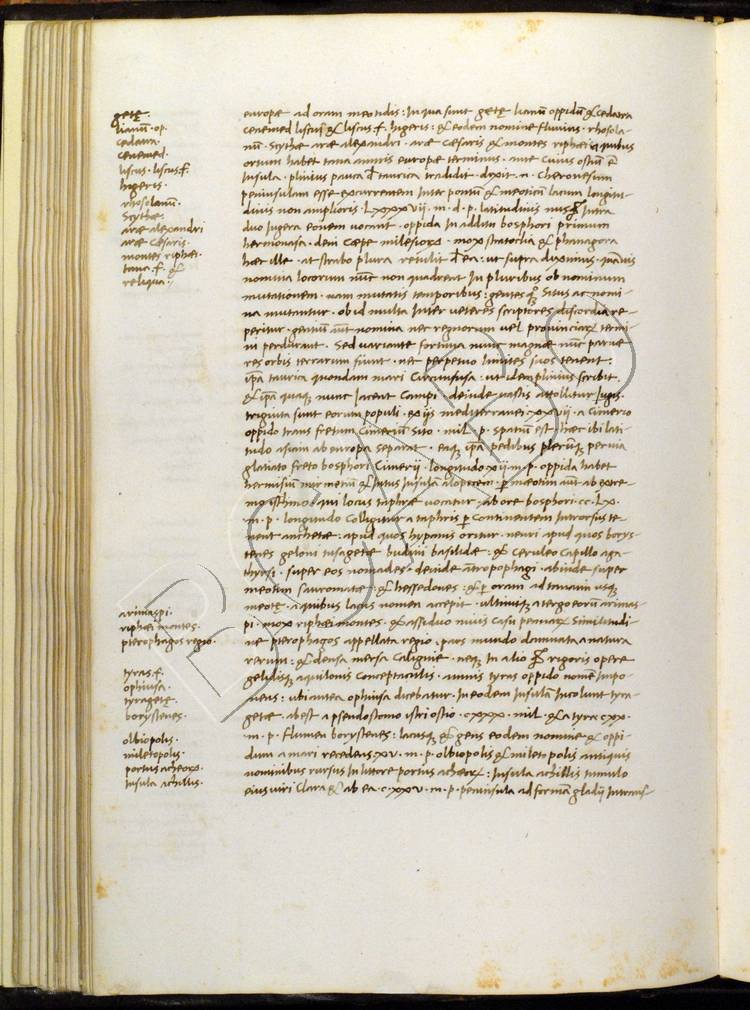 getę.
lianũ. op.
cedatra.
cenemed.
liscus. liscus. f.
higeris.
rhosolanũ.
Scythæ.
aræ alexandri
aræ cæsaris.
montes riphæi.
tana. f. &
reliqua.
europæ ad oram meotidis: In qua sunt getę lianũ oppidũ & cedatra
cenemed liscus & liscus. f. higeris: & eodem nomine fluvius. rhosola-
nũ. Scythæ aræ alexandri. aræ cæsaris & montes riphæi a quibus
ortum habet tana amnis europæ terminus. ante cuius ostiũ ẽ
Insula. plinius pauca đ taurica tradidit. dixit. n. Cheronesum
peninsulam esse excurrentem Inter pontũ & meoticũ lacum longitu-
dinis non amplioris. LXXXVII. m. d. p. latitudinis nusq̃ Intra
duo Iugera eonem uocant. oppida In aditu bosphori primum
hermonassa. dein cæpæ milesioꝝ. mox stratoclia & phanagora
hæc ille. at strabo plura retulit đ ea: ut supra diximus. quãvis
nomina locorum nũc non quadrent In pluribus ob nominum
mutationem. nam mutatis temporibus: gentes qq̃ situs ac nomi-
na mutantur. ob id multa Inter veteres scriptores discordia re-
peritur. gentiũ aũt nomina nec regnorum uel provinciaꝝ termi-
ni perdurant. Sed variante fortuna nunc magnæ nũc parvæ
res orbis terrarum fiunt. nec perpetuo limites suos tenent:
ip̃a taurica quondam mari circunfusa: ut idem plinius scribit
& ip̃a quaqꝫ nunc Iacent campi. deinde vastis attollitur Iugis.
triginta sunt eorum populi. ex iis mediterranei. XXVII. a cimerio
oppido trans fretum Cimeriũ sito. mil. p. spatium est hæc ibi lati-
tudo asiam ab europa separat. eaqꝫ ip̃a pedibus plerũqꝫ pervia
glatiato freto bosphori Cimerii. longitudo. XII. m. p. oppida habet
hermisiũ mirmetiũ & Intus Insula alopecen. p meotim aũt ab extre-
mo Isthmo. qui locus taphræ vocatur. ab ore bosphori. CC. LX.
m. p. longitudo colligitur a taphris p continentem Introrsus te-
nent anchetæ: apud quos hypanis oritur. neuri apud quos borys-
tenes geloni tusagetæ budini basilidæ: & ceruleo capillo aga-
thyrsi. super eos nomades. deinde ãtropophagi. abinde super
meotim sauromatæ: & hessedones: & p oram ad tanaim usqꝫ
meotę. a quibus lacus nomen accepit. ultimiqꝫ a tergo eorũ arimas-
pi. mox riphæi montes. & assiduo nivis casu pennaꝝ similitudi-
ne pterophagos appellata regio. pars mundo damnata a natura
rerum: & densa mersa caligine. neqꝫ In alio q̃ rigoris opere
gelidisqꝫ aquilonis conceptaculis. amnis tyras oppido nomẽ Impo-
nens: ubi antea ophiusa dicebatur. In eodem Insulã Incolunt tyra-
getæ. abest a pseudostomo istri ostio. CXXX. mil. & a tyra CXX.
m. p. flumen borystenes: lacusqꝫ & gens eodem nomine & oppi-
dum a mari recedens. XV. m. p. olbiopolis & miletopolis antiquis
nominibus rursus In littore portus achæoꝝ: Insula achillis tumulo
eius viri clara & ab ea. CXXV. m. p. peninsula ad formã gladii Intrans-
arimaspi.
riphæi montes.
pterophagos regio.
tyras. f.
ophiusa.
tyragetę.
borystenes.
olbiopolis.
miletopolis.
portus acheoꝝ.
Insula achillis.